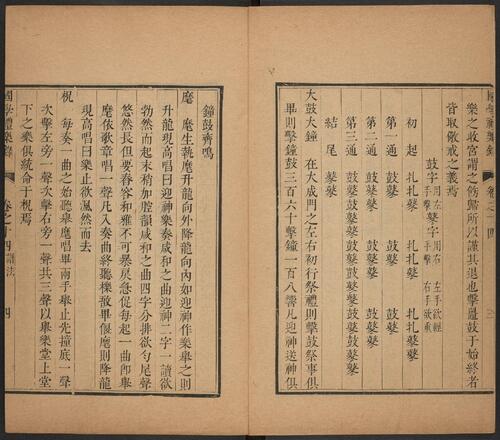 國學禮樂錄 卷之十四
樂之收宮謂之飭歸所以謹其退也擊鼉鼓于始終者
皆取儆戒之義焉
鼓字用左手擊鼕字用右手擊左手欲輕右手欲重
初起 扎扎鼕 扎扎鼕 扎扎鼕鼕
第一通 鼓鼕 鼓鼕 鼓鼕鼓鼕
第二通 鼓鼕 鼓鼕
第三通 鼓鼕
結尾 鼕鼕
大鼓大鐘 在大成門之左右初行祭禮則擊鼓祭事俱
畢則擊鐘鼓三百六十擊鐘一百八響凡迎神送神俱
鐘鼓齊鳴
麾 麾生執麾升龍向外降龍向內如迎神作樂舉之則
升龍現高唱曰迎神樂奏咸和之曲迎神二字一讀欲
勃然而起末稍加腔韻咸和之曲四字分排欲勻尾聲
悠然長但要舂容和雅不可暴戾急促每起一曲即舉
麾依歌章唱一聲凡入奏曲終聽櫟敔畢偃麾則降龍
現高唱曰樂止欲渢然而去
柷 每奏一曲之始聽舉麾唱畢兩手舉止先撞底一聲
次擊左旁一聲次擊右旁一聲共三聲以舉樂堂上堂
下之樂俱統命于柷焉
國學禮樂錄 卷之十四 譜法 四